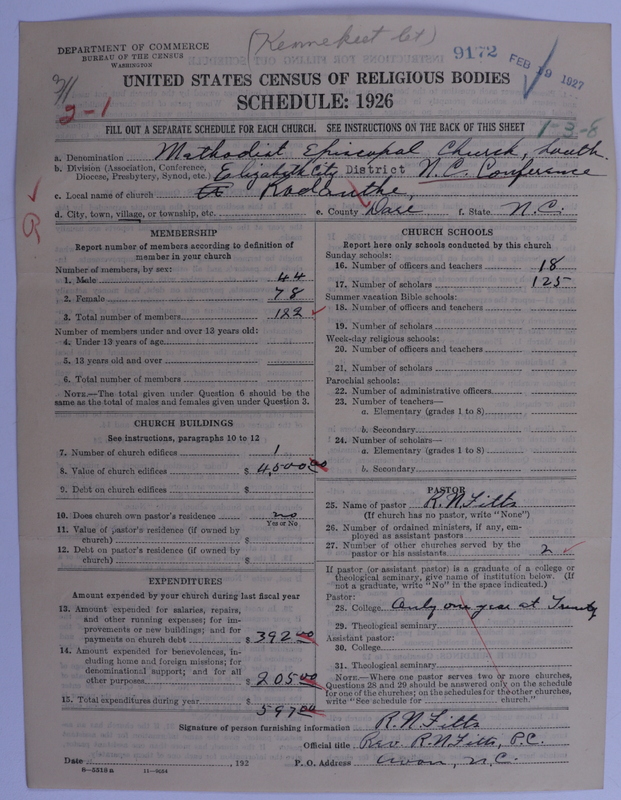 DEPARTMENT OF COMMERCE
BUREAU OF THE CENSUS
WASHINGTON
9172 FEB 19 1927
UNITED STATES CENSUS OF RELIGIOUS BODIES
SCHEDULE: 1926
2-1
FILL OUT A SEPARATE SCHEDULE FOR EACH CHURCH. SEE INSTRUCTIONS ON THE BACK OF THIS SHEET
1-3-8
a. Denomination Methodist Episcopal Church, South.
b. Division (Association, Conference, Diocese, Presbytery, Synod, etc.) Elizabeth City District N.C. Conference
c. Local name of church Rodanthe,
d. City, town, village, or township, etc. e. County Dare f. State N.C.
R
MEMBERSHIP
Report number of members according to definition of
member in your church
Number of members, by sex:
1. Male 44
2. Female 78
3. Total number of members 122
Number of members under and over 13 years old:
4. Under 13 years of age
5. 13 years old and over
6. Total number of members
NOTE.—The total given under Question 6 should be the
same as the total of males and females given under Question 3.
CHURCH BUILDINGS
See instructions, paragraphs 10 to 12
7. Number of church edifices 1
8. Value of church edifices $ 4,500 00
9. Debt on church edifices $
10. Does church own pastor's residence no
Yes or No
11. Value of pastor's residence (if owned by
church) $
12. Debt on pastor's residence (if owned by
church) $
EXPENDITURES
Amount expended by your church during last fiscal year
13. Amount expended for salaries, repairs,
and other running expenses; for im-
provements or new buildings; and for
payments on church debt $ 392 00
14. Amount expended for benevolences, in-
cluding home and foreign missions; for
denominational support; and for all
other purposes $ 205 00
15. Total expenditures during year $ 597 00
CHURCH SCHOOLS
Report here only schools conducted by this church
Sunday schools:
16. Number of officers and teachers 18
17. Number of scholars 125
Summer vacation Bible schools:
18. Number of officers and teachers
19. Number of scholars
Week-day religious schools:
20. Number of officers and teachers
21. Number of scholars
Parochial schools:
22. Number of administrative officers
23. Number of teachers—
a. Elementary (grades 1 to 8)
b. Secondary
24. Number of scholars—
a. Elementary (grades 1 to 8)
b. Secondary
PASTOR
25. Name of pastor R.N. Fitts
(If church has no pastor, write "None")
26. Number of ordained ministers, if any, em-
ployed as assistant pastors
27. Number of other churches served by the
pastor or his assistants 2
If pastor (or assistant pastor) is a graduate of a college or
theological seminary, give name of institution below. (If
not a graduate, write "No" in the space indicated.)
Pastor:
28. College Only one year at Trinity
29. Theological seminary
Assistant pastor:
30. College
31. Theological seminary
NOTE.—Where one pastor serves two or more churches,
Questions 28 and 29 should be answered only on the schedule
for one of the churches; on the schedules for the other churches,
write "See schedule for church."
Signature of person furnishing information R.N. Fitts
Official title Rev. R.N. Fitts, P.C.
Date , 192 P. O. Address Avon, N.C.
8—5318a 11—9034